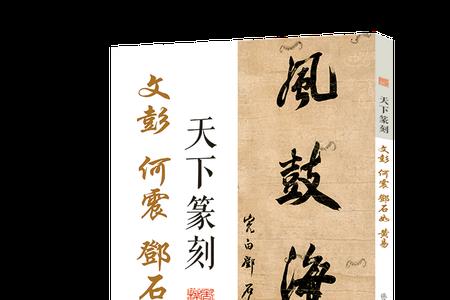 天下篆刻
文彭 何震 鄧石
風鼓海
完白鄧石
天下篆刻
文彭 何震 鄧石如 黄易